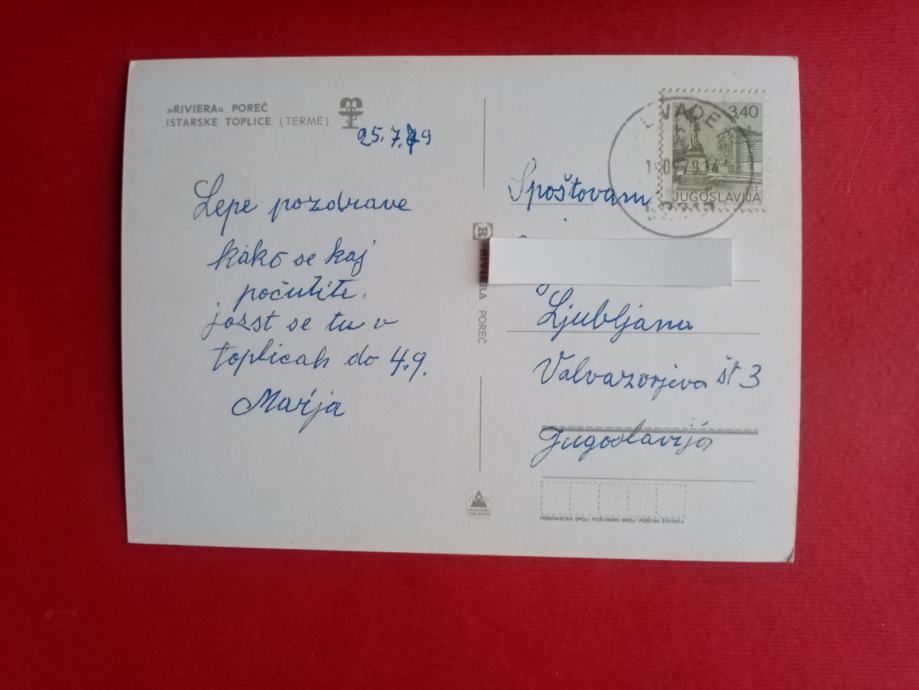 »RIVIERA« POREČ
ISTARSKE TOPLICE (TERME)
25.7.79
Lepe pozdrave
kako se kaj
počutite.
jasst se tu v
toplicah do 4.9.
Marija
RIVIERA POREČ
LIVADE
3,40
JUGOSLAVIJA
Spoštovani
Ljubljana
Valvazorjeva št 3
Jugoslavija